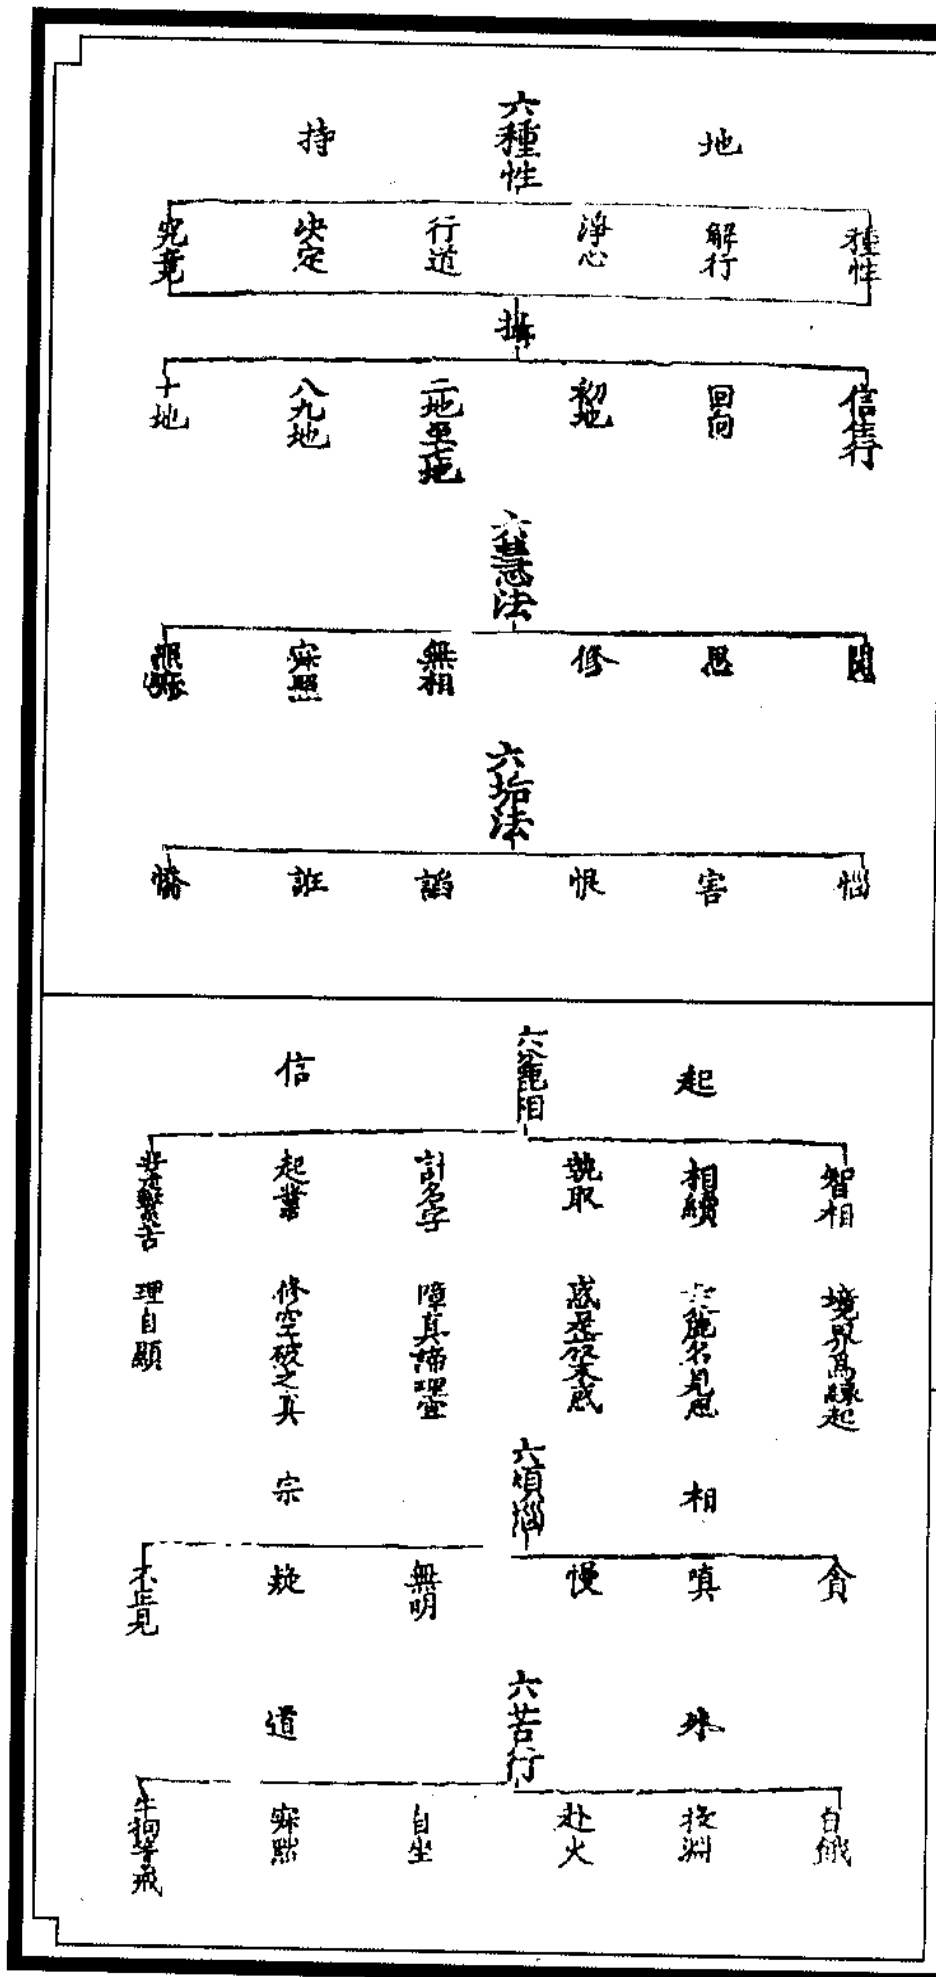 地
六種性
持
種性
解行
淨心
行道
決定
究竟
攝
信住行
回向
初地
二地至七地
八九地
十地
六慧法
聞
思
修
無相
寂照
六垢法
惱
害
恨
諂
誑
憍
起
六麤相
信
智相
境界爲緣起
相續
執取
計名字
障真諦理
起業
修空破之真
業繫苦
理自顯
相
六煩惱
宗
貪
嗔
慢
無明
疑
不正見
外
六苦行
道
自餓
投淵
赴火
自坐
寂黙
牛狗等戒